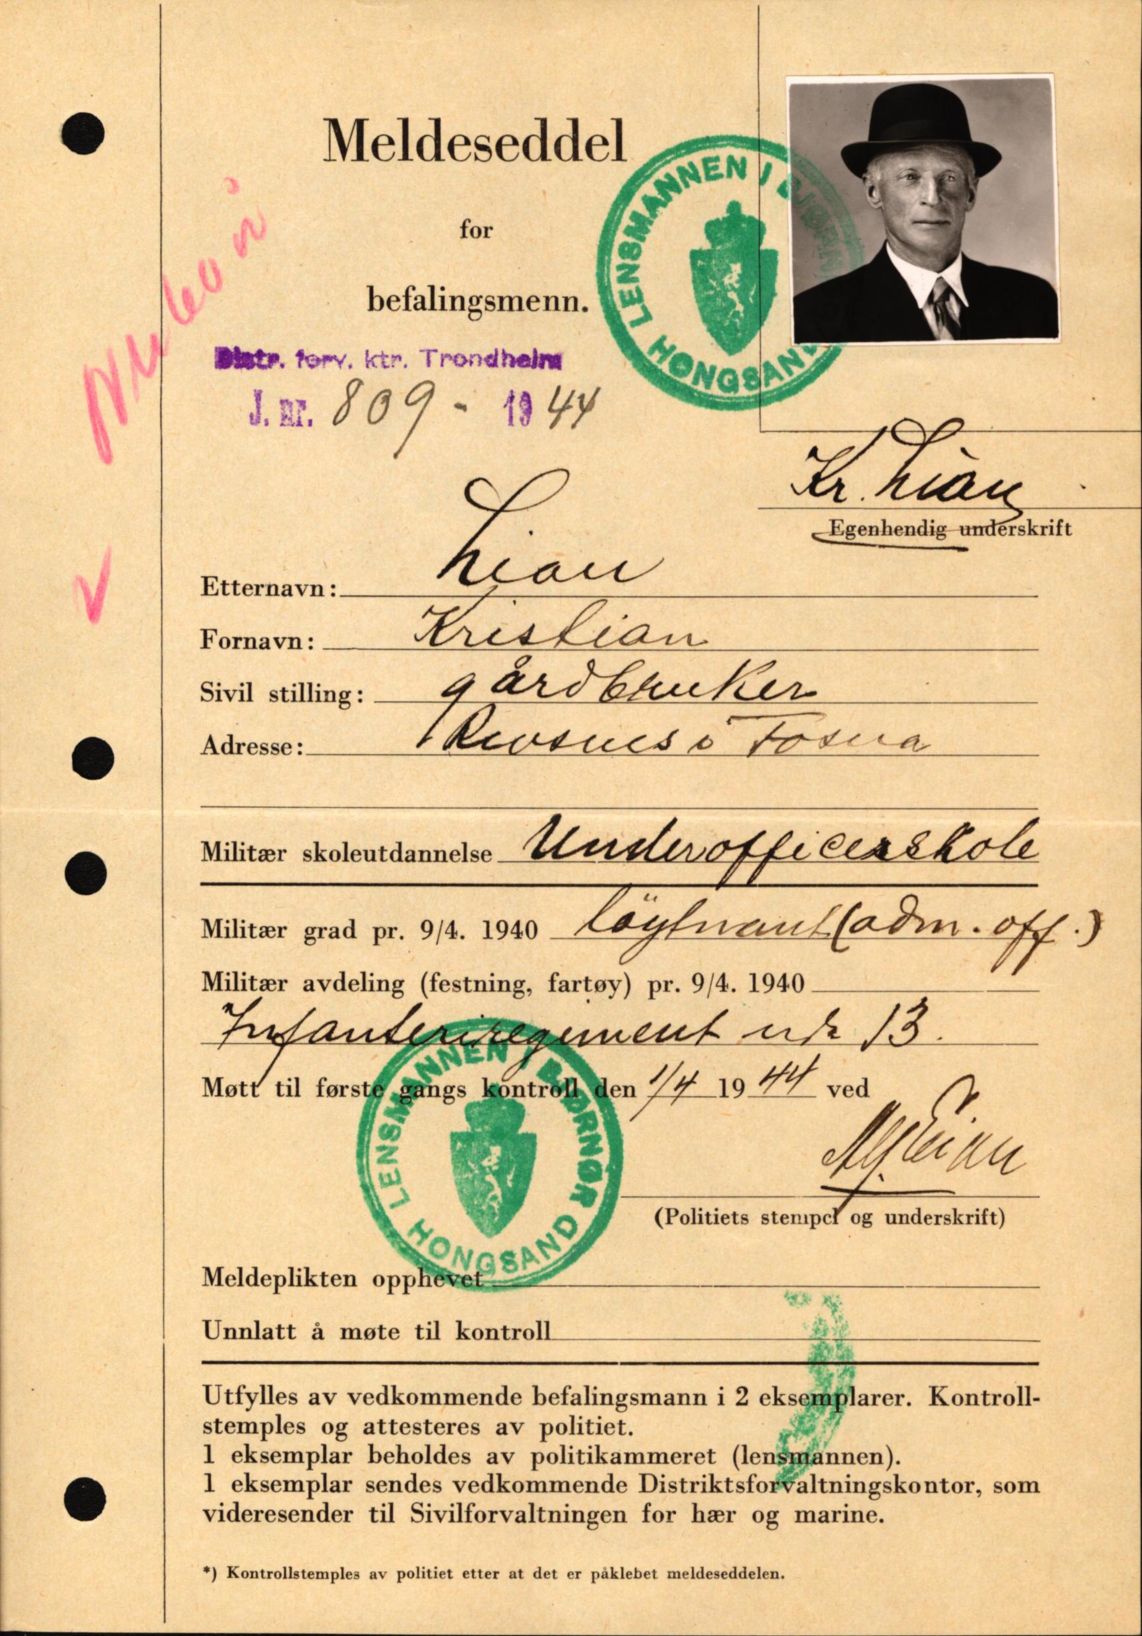 Meldeseddel
for
befalingsmenn.
LENSMANNEN I
HONGSAND
Distr. forv. ktr. Trondheim
J. nr. 809 - 1944
Kr. Lian
Egenhendig underskrift
Etternavn: Lian
Fornavn: Kristian
Sivil stilling: gårdbruker
Adresse: Revsnes i Fosna
Militær skoleutdannelse Underofficersskole
Militær grad pr. 9/4. 1940 löytnant (adm. off.)
Militær avdeling (festning, fartøy) pr. 9/4. 1940
Infanteriregiment nr. 13.
Møtt til første gangs kontroll den 1/4 1944 ved
LENSMANNEN I BJØRNØR
HONGSAND
(Politiets stempel og underskrift)
Meldeplikten opphevet
Unnlatt å møte til kontroll
Utfylles av vedkommende befalingsmann i 2 eksemplarer. Kontroll-
stemples og attesteres av politiet.
1 eksemplar beholdes av politikammeret (lensmannen).
1 eksemplar sendes vedkommende Distriktsforvaltningskontor, som
videresender til Sivilforvaltningen for hær og marine.
*) Kontrollstemples av politiet etter at det er påklebet meldeseddelen.